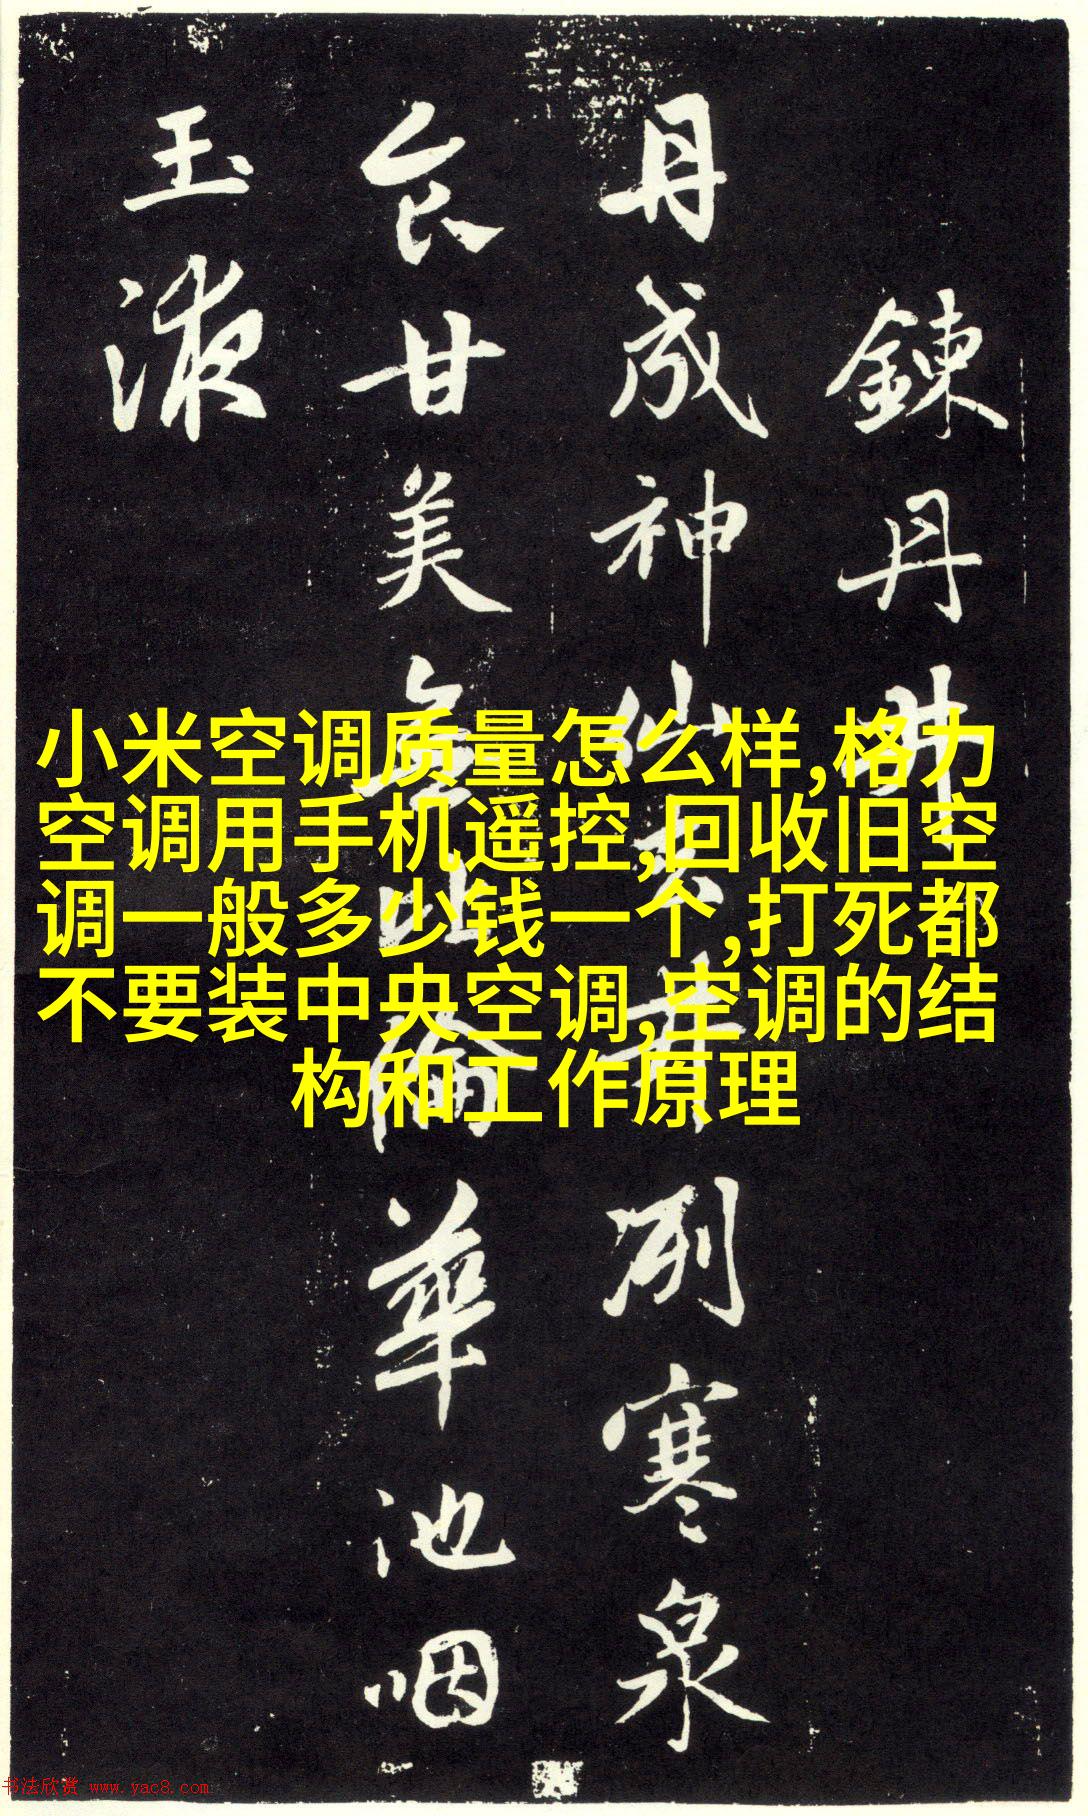 鍊丹井
丹成神仙去井冽寒泉
食甘美無比倫華池咽
玉液
小米空调质量怎么样,格力
空调用手机遥控,回收旧空
调一般多少钱一个,打死都
不要装中央空调,空调的结
构和工作原理
书法欣赏 www.yac8.com